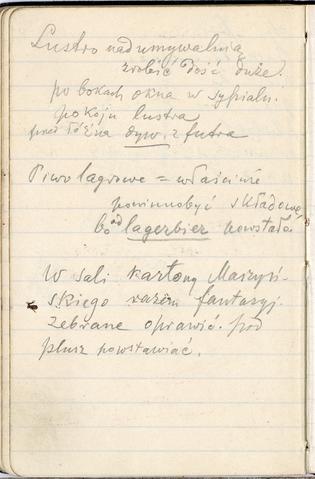 Lustro nad umywalnią
zrobić dość duże.
po bokach okna w sypialni
pokoju lustra
przed łóżka dyw. z futra
Piwo lagrowe = właściwie
powinno być składowe,
bo od lagerbier powstało.
W sali kartony Maszyń-
skiego razem fantazyj.
zebrane oprawić. pod
plusz powstawiać.